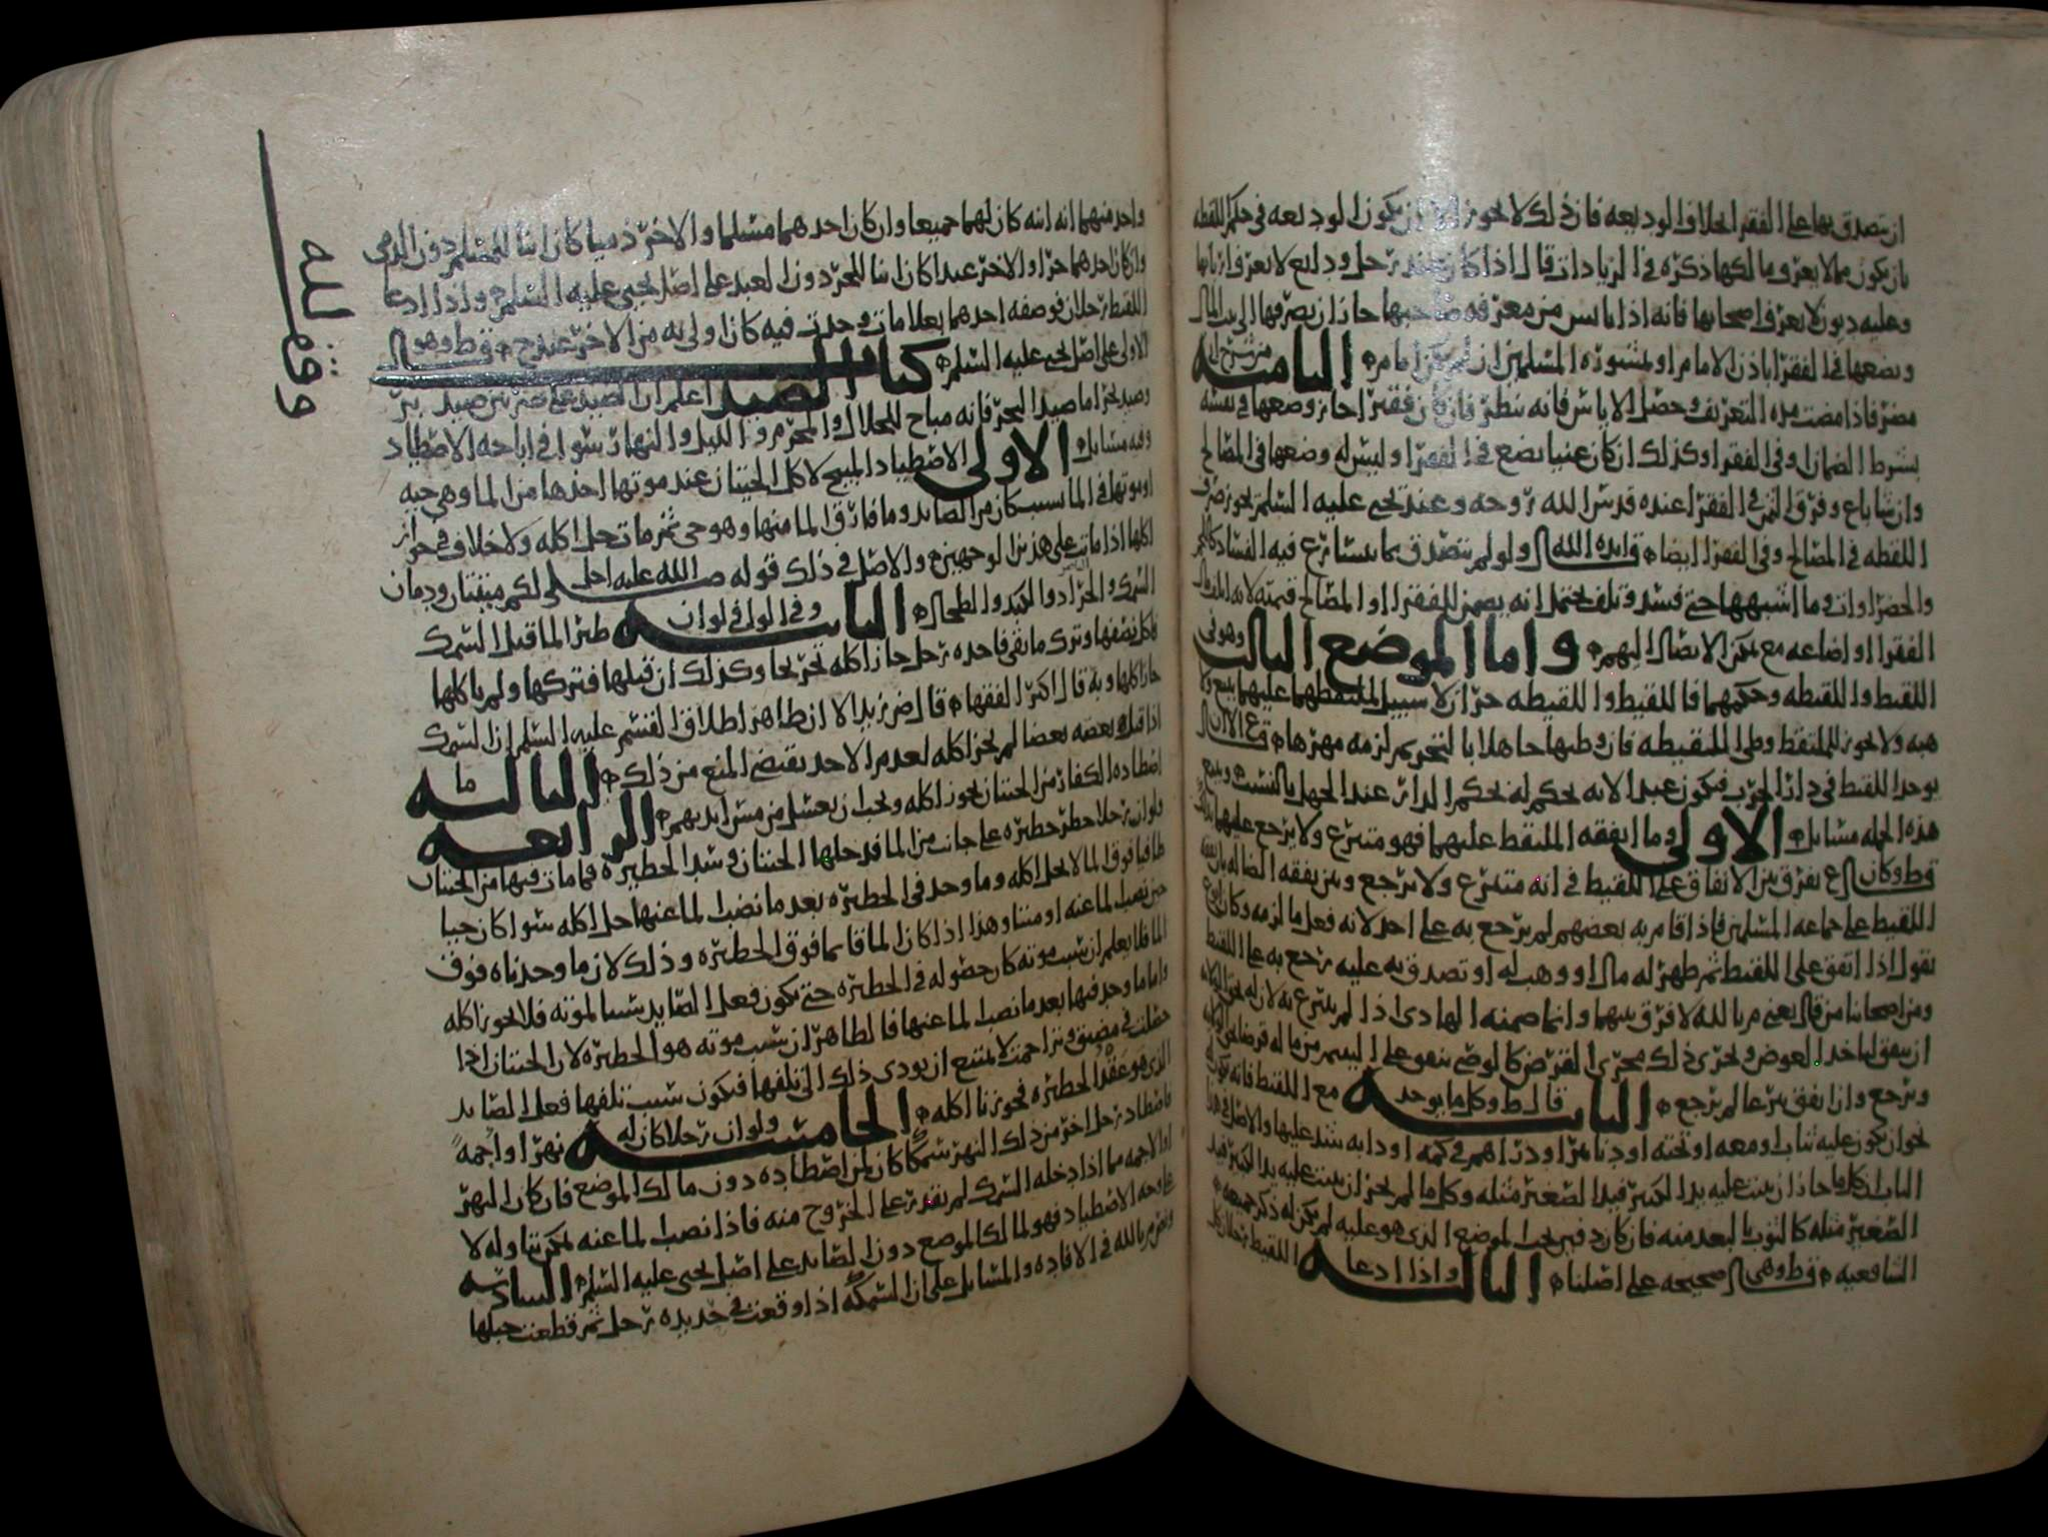 ان يتصدق بها على الفقرا بخلاف الوديعه فان ذلك لا يجوز الا ان يكون الوديعه في حكم اللقطه
بان يكون مما لا يعرف مالكها ذكره في الزيادات قال اذا كان عند رجل ودايع لا يعرف اربابها
وعليه ديون لا يعرف اصحابها فانه اذا يايس من معرفه صاحبها جاز ان يصرفها الى بيت المال
ويضعها في الفقرا باذن الامام او بمشوره المسلمين ان لم يكن امام الثامنه
فاذا مضت مده التعريف وحصل الاياس فانه ينظر فان كان فقيرا جاز وضعها في نفسه
بشرط الضمان وفي الفقرا وكذلك ان كان غنيا يضع في الفقرا وليس له وضعها في المصالح
وان شا باع وفرق الثمن في الفقرا عنده قدس الله روحه وعند يحيى عليه السلم يجوز صرف
اللقطه في المصالح وفي الفقرا ايضا ولو لم يتصدق بما يتسارع فيه الفساد
والخضراوات وما اشبهها حتى فسد وتلف يحتمل انه يضمن للفقرا او المصالح قيمته
الفقرا او اضاعه مع تمكن الايصال اليهم واما الموضع الثالث وهو في
اللقيط واللقيطه وحكمهما فاللقيط واللقيطه حران لا سبيل لملتقطهما عليهما ببيع ولا
هبه ولا يجوز للملتقط وطى اللقيطه فان وطيها جاهلا بالتحريم لزمه مهرها
يوجد اللقيط في دار الحرب فيكون عبدا لانه يحكم له بحكم الدار عند الجهل بالنسب
هذه الجمله مسايل الاولى وما انفقه الملتقط عليهما فهو متبرع ولا يرجع عليهما
يفرق بين الانفاق على اللقيط في انه متبرع ولا يرجع وبين نفقه الضاله
اللقيط على جماعه المسلمين فاذا قام به بعضهم لم يرجع به على احد لانه فعل ما لزمه وكان
يقول اذا انفق على اللقيط ثم ظهر له مال او وهب له او تصدق به عليه رجع به على اللقيط
ومن اصحابنا من قال يعني م بالله لا فرق بينهما وانما ضمنه الهادي اذا لم يتبرع به
العوض ويجري ذلك مجرى القرض كالوصي ينفق على اليتيم من ماله قرضا
ويرجع وان انفق تبرعا لم يرجع الثانيه قال ط وكل ما يوجد مع اللقيط فانه يكون له
نحو ان يكون عليه ثياب او معه او تحته او دنانير او دراهم في كمه او دابه شد عليها والاصل في هذا
الباب ان كل ما جاز ان يثبت عليه يد الكبير فيد الصغير مثله وكل ما لم يجز ان يثبت عليه يد الكبير فيد
الصغير مثله كالثوب البعيد منه فان كان دفين تحت الموضع الذي هو عليه لم يكن له
الشافعيه صحيحه على اصلنا الثالثه واذا ادعا اللقيط رجلان
وقف لله
واحد منهما انه ابنه كان لهما جميعا وان كان احدهما مسلما والاخر ذميا كان ابنا للمسلم دون الذمي
وان كان احدهما حرا والاخر عبدا كان ابنا للحر دون العبد على اصل يحيى عليه السلم واذا ادعا
اللقيط رجلان فوصفه احدهما بعلامات وجدت فيه كان اولى به من الاخر عند ح
على اصل يحيى عليه السلم كتاب الصيد اعلم ان الصيد على ضربين صيد بر
وصيد بحر اما صيد البحر فانه مباح للحلال والمحرم والليل والنهار سوا في اباحه الاصطياد
وفيه مسايل الاولى الاصطياد المبيح لاكل الحيتان عند موتها اخذها من الما وهي حيه
او موتها في الما بسبب كان من الصايد وما فارق الما منها وهو حي ثم مات حل اكله ولا خلاف في جواز
اكلها اذا ماتت على هذين الوجهين والاصل في ذلك قوله صلى الله عليه احل لكم ميتتان ودمان
السمك والجراد والكبد والطحال الثانيه وفي الوافي لو ان طير الما قتل السمك
فاكل نصفها وترك ما بقي فاخذه رجل جاز اكله تخريجا وكذلك ان قتلها فتركها ولم ياكلها
جاز اكلها وبه قال اكثر الفقها قال ض زيد الا ان ظاهر اطلاق القسم عليه السلم ان السمك
اذا قتل بعضه بعضا لم يجز اكله لعدم الاخذ يقتضي المنع من ذلك الثالثه ما
اصطاده الكفار من الحيتان يجوز اكله ويجب ان يغسل من مس ايديهم الرابعه
ولو ان رجلا حظر حظيره على جانب من الما فدخلها الحيتان وسد الحظيره فما مات فيها من الحيتان
طافيا فوق الما لا يحل اكله وما وجد في الحظيره بعد ما نضب الما عنها حل اكله سوا كان حيا
حين نضب الما عنه او ميتا وهذا اذا كان الما قايما فوق الحظيره وذلك لان ما وجدناه فوق
الما فلا يعلم ان سبب موته كان حصوله في الحظيره حتى يكون فعل الصايد سببا لموته فلا يجوز اكله
واما ما وجد فيها بعد ما نضب الما عنها فالظاهر ان سبب موته هو الحظيره لان الحيتان اذا
حصلت في مضيق وتزاحمت لا يمتنع ان يودي ذلك الى تلفها فيكون سبب تلفها فعل الصايد
الذي هو عقد الحظيره فجوزنا اكله الخامسه ولو ان رجلا كان له نهرا او اجمه
فاصطاد رجل اخر من ذلك النهر سمكا كان لمن اصطاده دون مالك الموضع فان كان النهر
او الاجمه مما اذا دخله السمك لم يقدر على الخروج منه فاذا نضب الما عنه يمكن تناوله لا
على وجه الاصطياد فهو لمالك الموضع دون الصايد على اصل يحيى عليه السلم السادسه
ونص م بالله في الافاده والمسايل على ان السمكه اذا وقعت في حديده رجل ثم قطعت حبلها